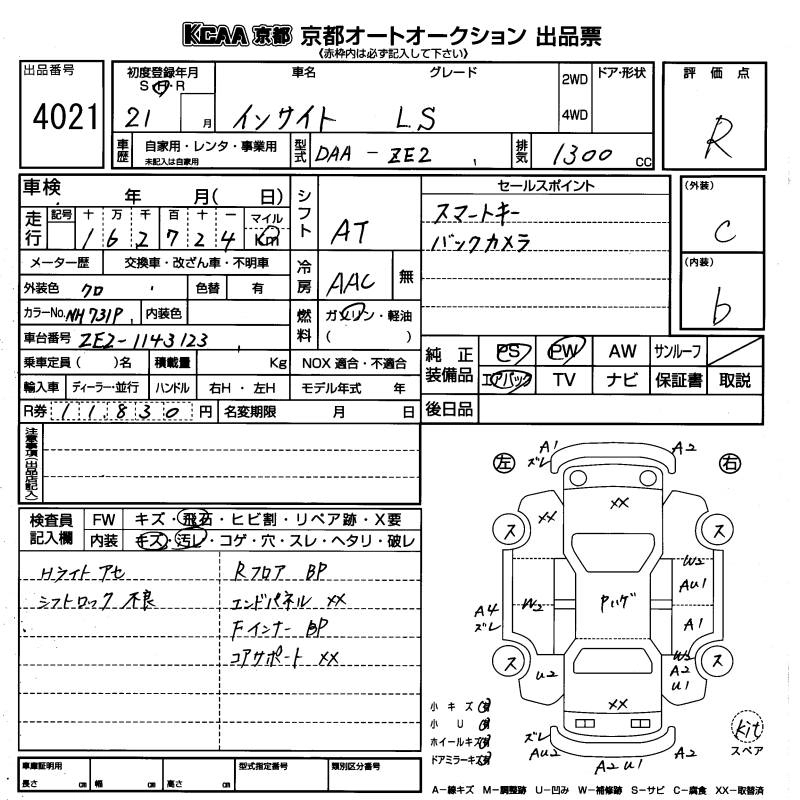 KCAA 京都 京都オートオークション 出品票
《赤枠内は必ず記入して下さい》
出品番号
4021
初度登録年月
S・H・R
21 月
車名 グレード
インサイト LS
2WD
4WD
ドア・形状
評価点
R
車歴
自家用・レンタ・事業用
未記入は自家用
型式
DAA-ZE2
排気
1300 CC
車検 年 月( 日)
走行
記号 十 万 千 百 十 一 マイル
162724 Km
シフト
AT
セールスポイント
スマートキー
バックカメラ
(外装)
C
(内装)
b
メーター歴 交換車・改ざん車・不明車
冷房
AAC 無
外装色 クロ 色替 有
カラーNo. NH731P 内装色
燃料
ガソリン・軽油
( )
車台番号 ZE2-1143123
純正装備品
PS PW AW サンルーフ
エアバック TV ナビ 保証書 取説
乗車定員( )名 積載量 Kg NOX 適合・不適合
輸入車 ディーラー・並行 ハンドル 右H・左H モデル年式 年
R券 11830 円 名変期限 月 日
後日品
注意事項(出品店記入)
検査員記入欄
FW キズ・飛石・ヒビ割・リペア跡・X要
内装 キズ・汚レ・コゲ・穴・スレ・ヘタリ・破レ
Hライト アセ
シフトロック 不良
Rフロア BP
エンドパネル XX
Fインナー BP
コアサポート XX
左 右
A1
ズレ
A2
XX
XX
ス ス
W2
AU1
A4
ズレ
W2
Pハゲ
A1
W3
A2
U1
ス ス
U2
XX
小キズ
小U
ホイールキズ
ドアミラーキズ
ズレ
AU2
A2 U1
A2
Kit
スペア
車庫証明用
長さ cm 幅 cm 高さ cm
型式指定番号
類別区分番号
A-線キズ M-調整跡 U-凹み W-補修跡 S-サビ C-腐食 XX-取替済